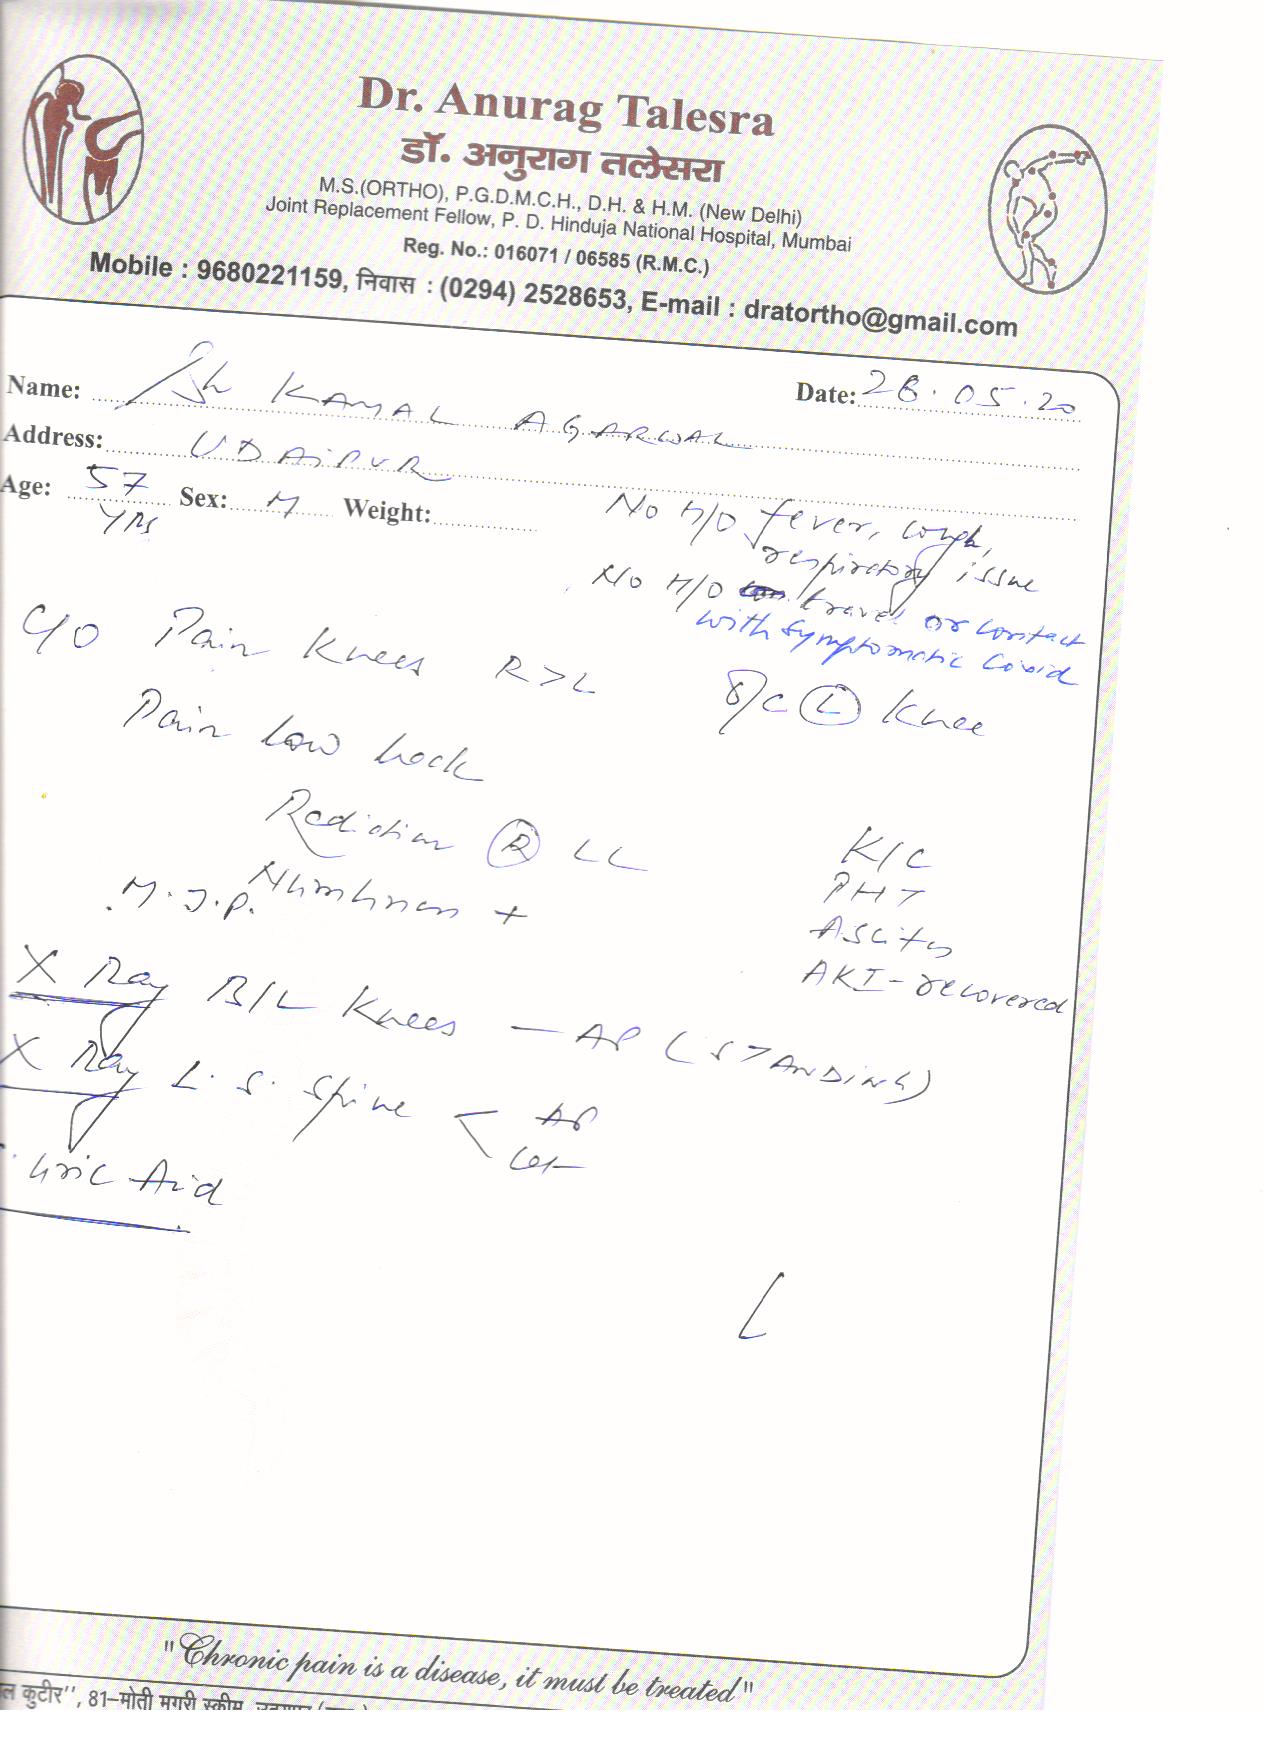 Dr. Anurag Talesra
डॉ. अनुराग तलेसरा
M.S.(ORTHO), P.G.D.M.C.H., D.H. & H.M. (New Delhi)
Joint Replacement Fellow, P. D. Hinduja National Hospital, Mumbai
Reg. No.: 016071 / 06585 (R.M.C.)
Mobile : 9680221159, निवास : (0294) 2528653, E-mail : dratortho@gmail.com
Name: Sh KAMAL AGARWAL Date: 28.05.20
Address: UDAIPUR
Age: 57 yrs Sex: M Weight:
No H/O fever, cough,
respiratory issue
No H/O travel or contact
with symptomatic Covid
C/O Pain Knees R>L
Knee
Pain Low back
Radiation R LL
Numbness +
M.J.P.
K/C
PHT
Ascites
AKI - recovered
X Ray B/L Knees — AP (STANDING)
X Ray L.S. Spine < AP
Lat
Uric Acid
"Chronic pain is a disease, it must be treated"
कुटीर", 81-मोती मगरी स्कीम,